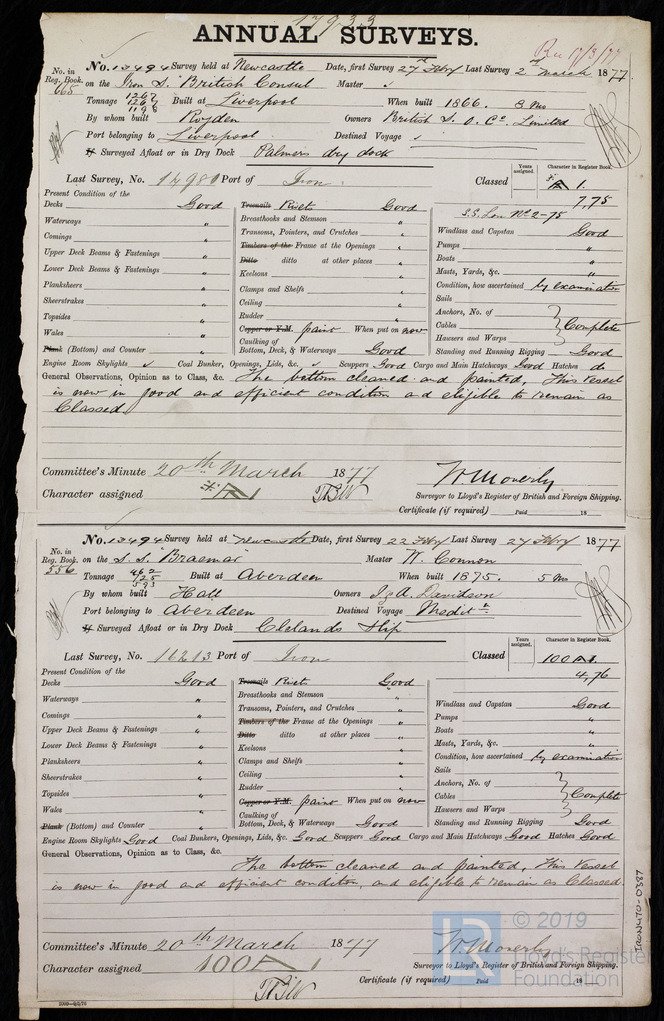 17933
ANNUAL SURVEYS.
Rec 17/3/77
No. 13494 Survey held at Newcastle Date, first Survey 27th Feby Last Survey 2nd March 1877
No. in Reg. Book. 668 on the Iron S. British Consul Master
Tonnage 1267 1267 1198 Built at Liverpool When built 1866. 8 Mo
By whom built Royden Owners British S. O. Co. Limited
Port belonging to Liverpool Destined Voyage
If Surveyed Afloat or in Dry Dock Palmers dry dock
Last Survey, No. 14980 Port of Iron. Classed
Years assigned.
Character in Register Book.
A 1.
7,75
S.S. Lon No 2-75
Present Condition of the
Decks Good
Waterways "
Comings "
Upper Deck Beams & Fastenings "
Lower Deck Beams & Fastenings "
Planksheers "
Sheerstrakes "
Topsides "
Wales "
Plank (Bottom) and Counter "
Treenails Rivets Good
Breasthooks and Stemson "
Transoms, Pointers, and Crutches "
Timbers of the Frame at the Openings "
Ditto ditto at other places "
Keelsons "
Clamps and Shelfs "
Ceiling "
Rudder "
Copper or Y.M. paint When put on now
Caulking of Bottom, Deck, & Waterways Good
Windlass and Capstan Good
Pumps "
Boats "
Masts, Yards, &c. "
Condition, how ascertained by examination
Sails
Anchors, No. of
Cables Complete
Hawsers and Warps
Standing and Running Rigging Good
Engine Room Skylights Coal Bunker, Openings, Lids, &c. Scuppers Good Cargo and Main Hatchways Good Hatches do
General Observations, Opinion as to Class, &c. The bottom cleaned and painted, This Vessel
is now in good and efficient condition and eligible to remain as
Classed
Committee's Minute 20th March 1877
Character assigned A1
W Moverly
Surveyor to Lloyd's Register of British and Foreign Shipping.
Certificate (if required) Paid 18
No. 13494 Survey held at Newcastle Date, first Survey 22 Feby Last Survey 27 Feby 1877
No. in Reg. Book. 556 on the S.S. Braemar Master W. Connon
Tonnage Built at Aberdeen When built 1875. 5 Mo
By whom built Hall Owners J. & A. Davidson
Port belonging to Aberdeen Destined Voyage Medit.
If Surveyed Afloat or in Dry Dock Clelands Slip
Last Survey, No. 16213 Port of Iron Classed
Years assigned.
Character in Register Book.
100A1.
4,76
Present Condition of the
Decks Good
Waterways "
Comings "
Upper Deck Beams & Fastenings "
Lower Deck Beams & Fastenings "
Planksheers "
Sheerstrakes "
Topsides "
Wales "
Plank (Bottom) and Counter "
Treenails Rivets Good
Breasthooks and Stemson "
Transoms, Pointers, and Crutches "
Timbers of the Frame at the Openings "
Ditto ditto at other places "
Keelsons "
Clamps and Shelfs "
Ceiling "
Rudder "
Copper or Y.M. paint When put on now
Caulking of Bottom, Deck, & Waterways Good
Windlass and Capstan Good
Pumps "
Boats "
Masts, Yards, &c. "
Condition, how ascertained by examination
Sails
Anchors, No. of
Cables Complete
Hawsers and Warps
Standing and Running Rigging Good
Engine Room Skylights Good Coal Bunkers, Openings, Lids, &c. Good Scuppers Good Cargo and Main Hatchways Good Hatches Good
General Observations, Opinion as to Class, &c.
The bottom cleaned and painted, This Vessel
is now in good and efficient condition, and eligible to remain as Classed.
Committee's Minute 20th March 1877
Character assigned 100A1
W Moverly
Surveyor to Lloyd's Register of British and Foreign Shipping.
Certificate (if required) Paid 18
IRON470-0387
LR
© 2019
Lloyd's Register
Foundation